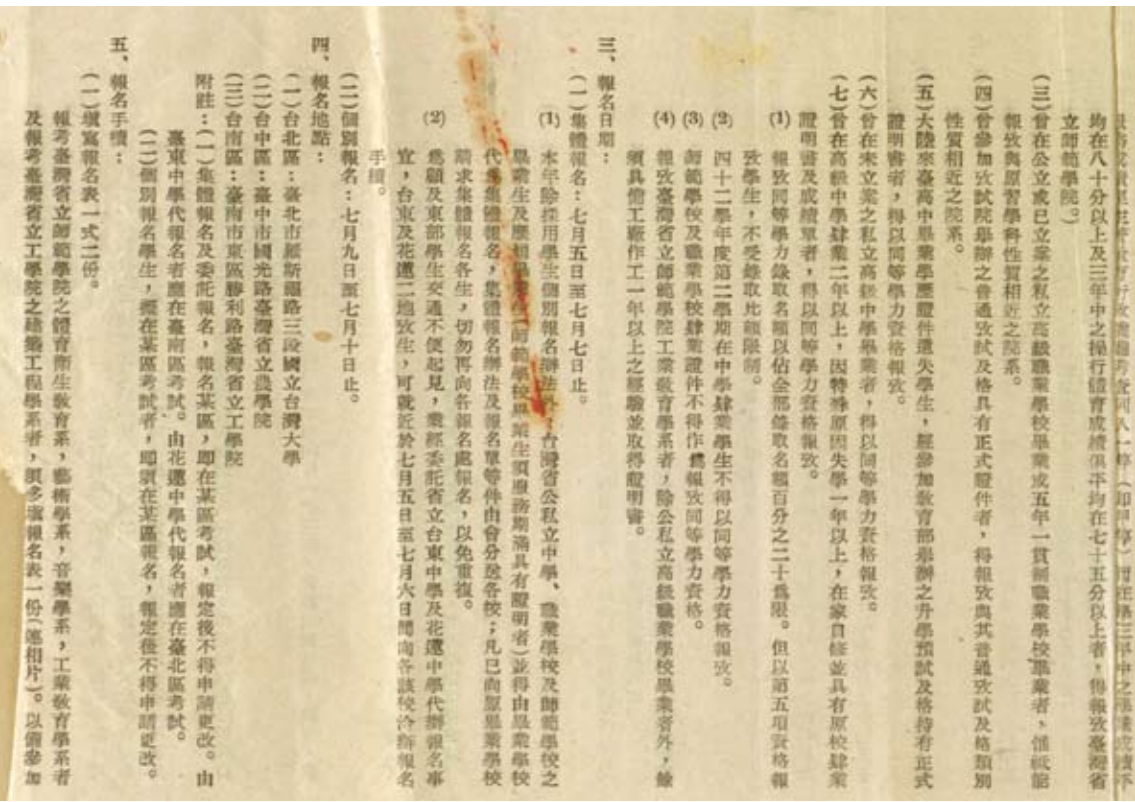 均在八十分以上及三年中之操行體育成績俱平均在七十五分以上者，得報攷臺灣省
立師範學院。）
（三）曾在公立或已立案之私立高級職業學校畢業或五年一貫制職業學校畢業者，僅祇能
報攷與原習學科性質相近之院系。
（四）曾參加攷試院舉辦之普通攷試及格具有正式證件者，得報攷與其普通攷試及格類別
性質相近之院系。
（五）大陸來臺高中畢業學歷證件遺失學生，經參加敎育部舉辦之升學預試及格持有正式
證明書者，得以同等學力資格報攷。
（六）曾在未立案之私立高級中學畢業者，得以同等學力資格報攷。
（七）曾在高級中學肄業二年以上，因特殊原因失學一年以上，在家自修並具有原校肄業
證明書及成績單者，得以同等學力資格報攷。
(1) 報攷同等學力錄取名額以佔全部錄取名額百分之二十爲限。但以第五項資格報
攷學生，不受錄取比額限制。
(2) 四十二學年度第二學期在中學肄業學生不得以同等學力資格報攷。
(3) 師範學校及職業學校肄業證件不得作爲報攷同等學力資格。
(4) 報攷臺灣省立師範學院工業敎育學系者，除公私立高級職業學校畢業者外，餘
須具備工廠作工一年以上之經驗並取得證明書。
三、報名日期：
（一）集體報名：七月五日至七月七日止。
(1) 本年除採用學生個別報名辦法外，台灣省公私立中學、職業學校及師範學校之
畢業生及應屆畢業生（師範學校畢業生須服務期滿具有證明者）並得由畢業學校
代集集體報名，集體報名辦法及報名單等件由會分送各校；凡已向原畢業學校
請求集體報名各生，切勿再向各報名處報名，以免重複。
(2) 爲顧及東部學生交通不便起見，業經委託省立台東中學及花蓮中學代辦報名事
宜，台東及花蓮二地攷生，可就近於七月五日至七月六日間向各該校洽辦報名
手續。
（二）個別報名：七月九日至七月十日止。
四、報名地點：
（一）台北區：臺北市羅斯福路三段國立台灣大學
（二）台中區：臺中市國光路臺灣省立農學院
（三）台南區：臺南市東區勝利路臺灣省立工學院
附註：（一）集體報名及委託報名，報名某區，即在某區考試，報定後不得申請更改。由
臺東中學代報名者應在臺南區考試。由花蓮中學代報名者應在臺北區考試。
（二）個別報名學生，擬在某區考試者，即須在某區報名，報定後不得申請更改。
五、報名手續：
（一）塡寫報名表一式二份。
報考臺灣省立師範學院之體育衛生敎育系，藝術學系，音樂學系，工業敎育學系者
及報考臺灣省立工學院之建築工程學系者，須多塡報名表一份（連相片）。以備參加